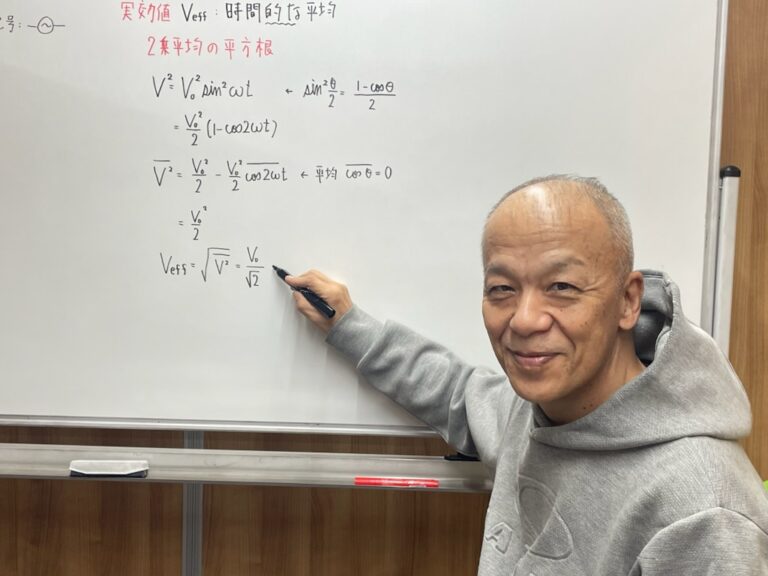 実効値 Veff : 時間的な平均
号: ~
2乗平均の平方根
V² = V₀² sin²ωt ← sin²θ/2 = (1-cosθ)/2
= V₀²/2 (1-cos2ωt)
V̅²̅ = V₀²/2 - V₀²/2 c̅o̅s̅2̅ω̅t ← 平均 c̅o̅s̅θ̅ = 0
= V₀²/2
Veff = √V̅²̅ = V₀/√2